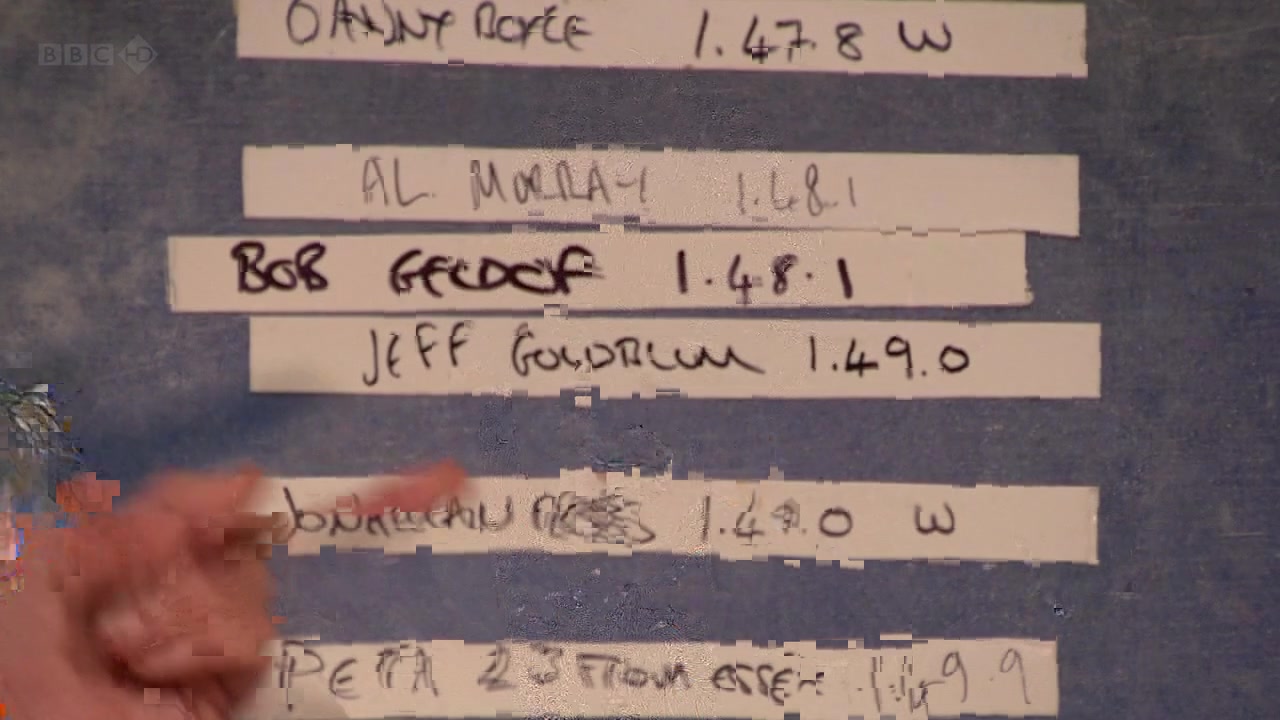 BBC HD
DANNY BOYLE 1.47.8 W
AL MURRAY 1.48.1
BOB GELDOF 1.48.1
JEFF GOLDBLUM 1.49.0
JONATHAN 1.49.0 W
PETTA 23 FROM ESSEX 1.49.9